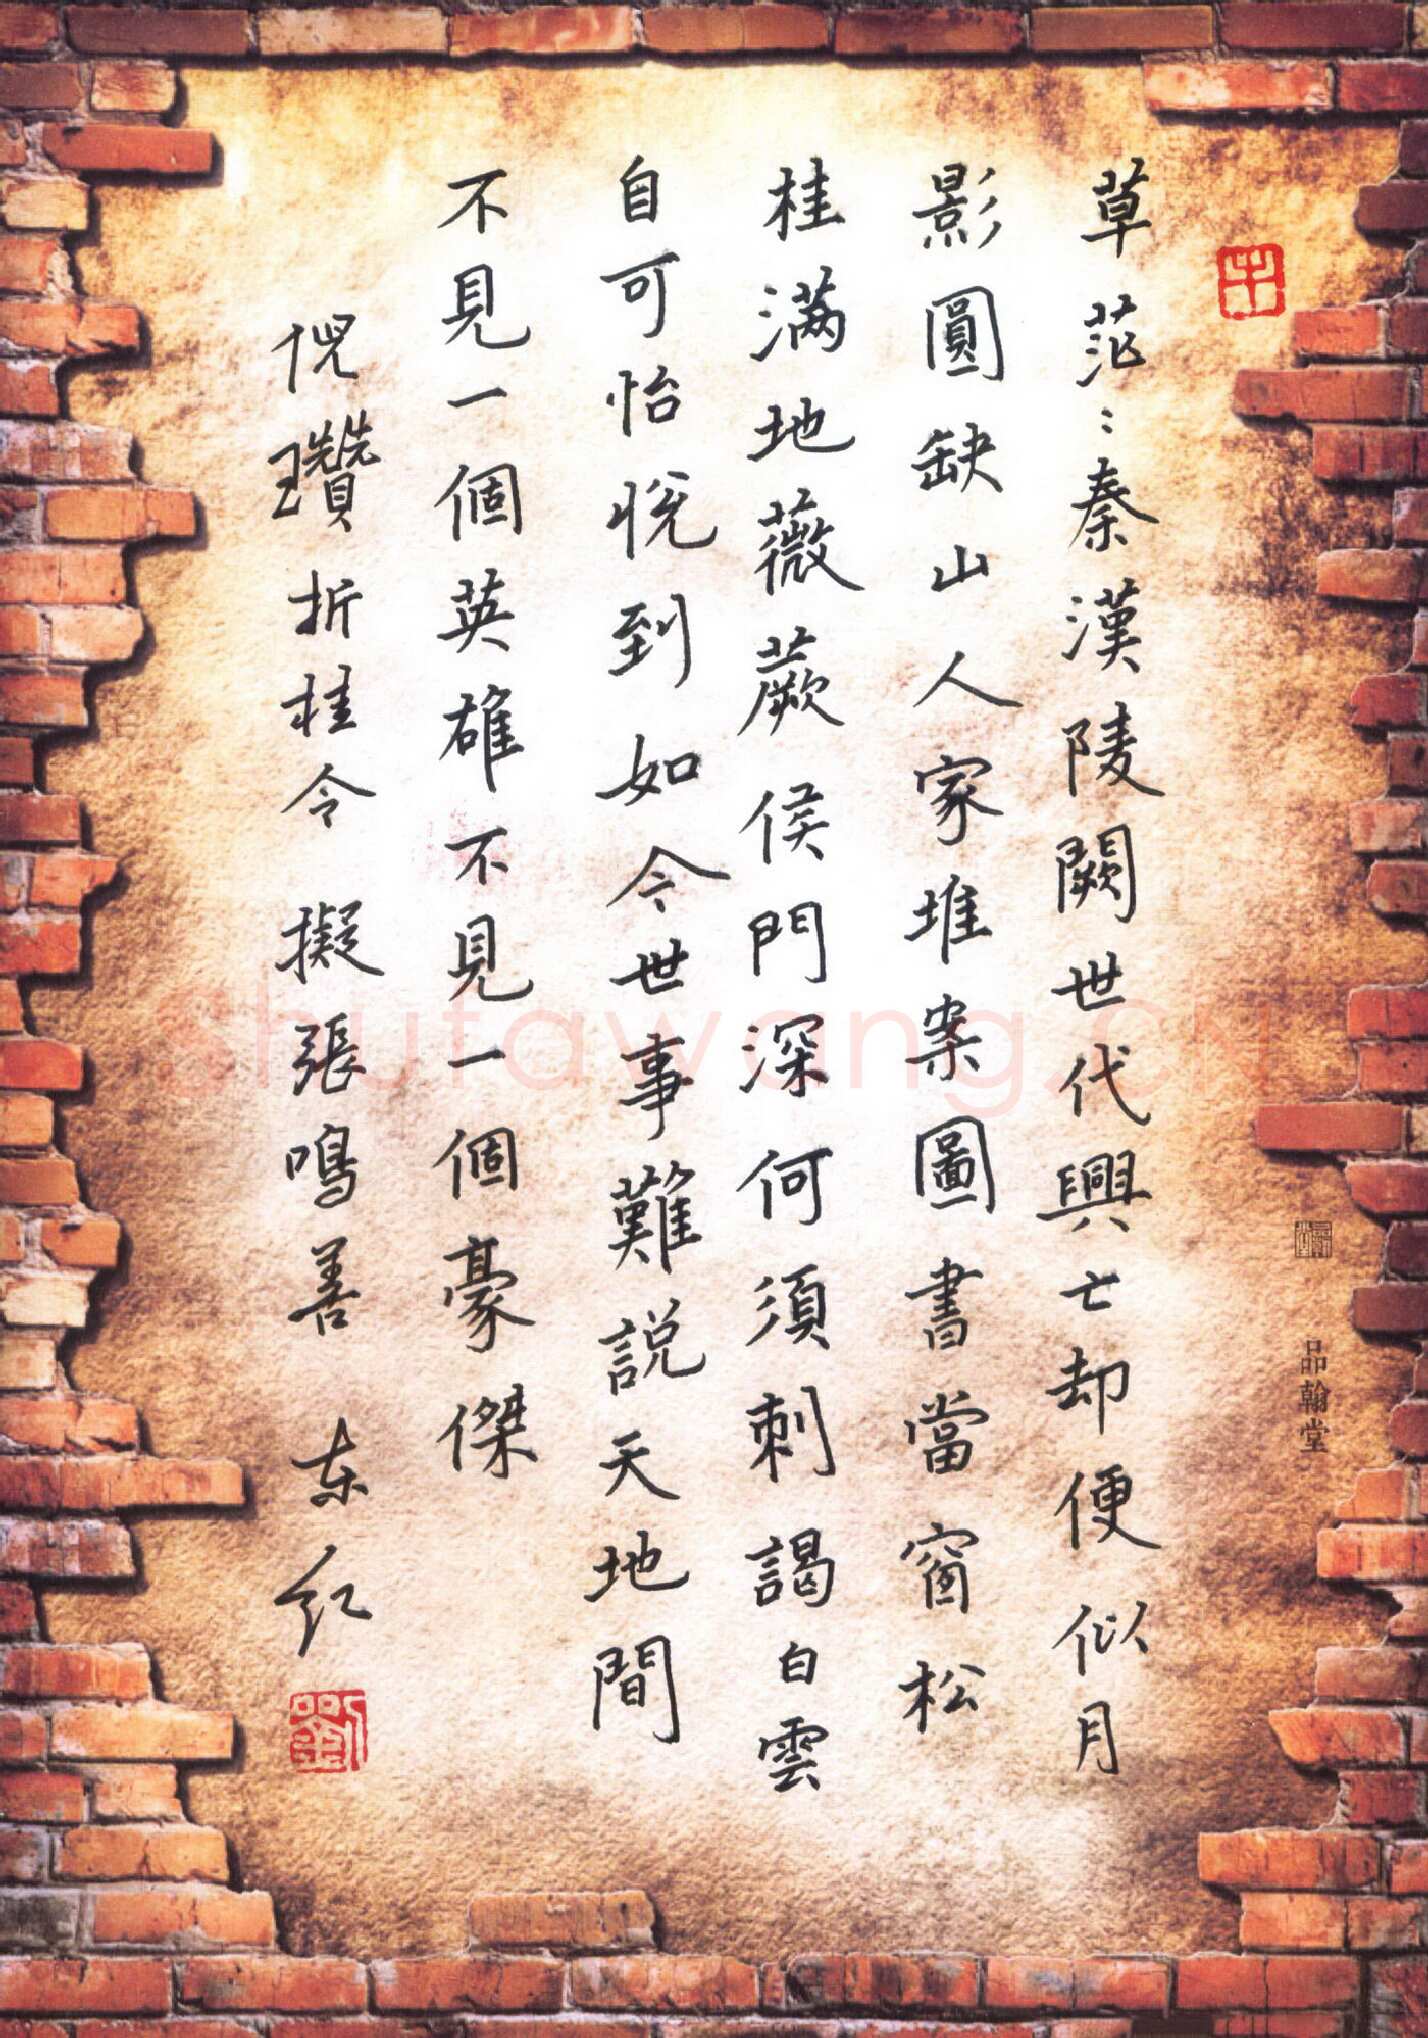 草茫〻秦漢陵闕世代興亡却便似月
影圓缺山人家堆案圖書當窗松
桂滿地薇蕨侯門深何須刺謁白雲
自可怡悅到如今世事難說天地間
不見一個英雄不見一個豪傑
倪瓚折桂令 擬張鳴善 东红
劉
品翰堂
品翰堂
shufawang.cn